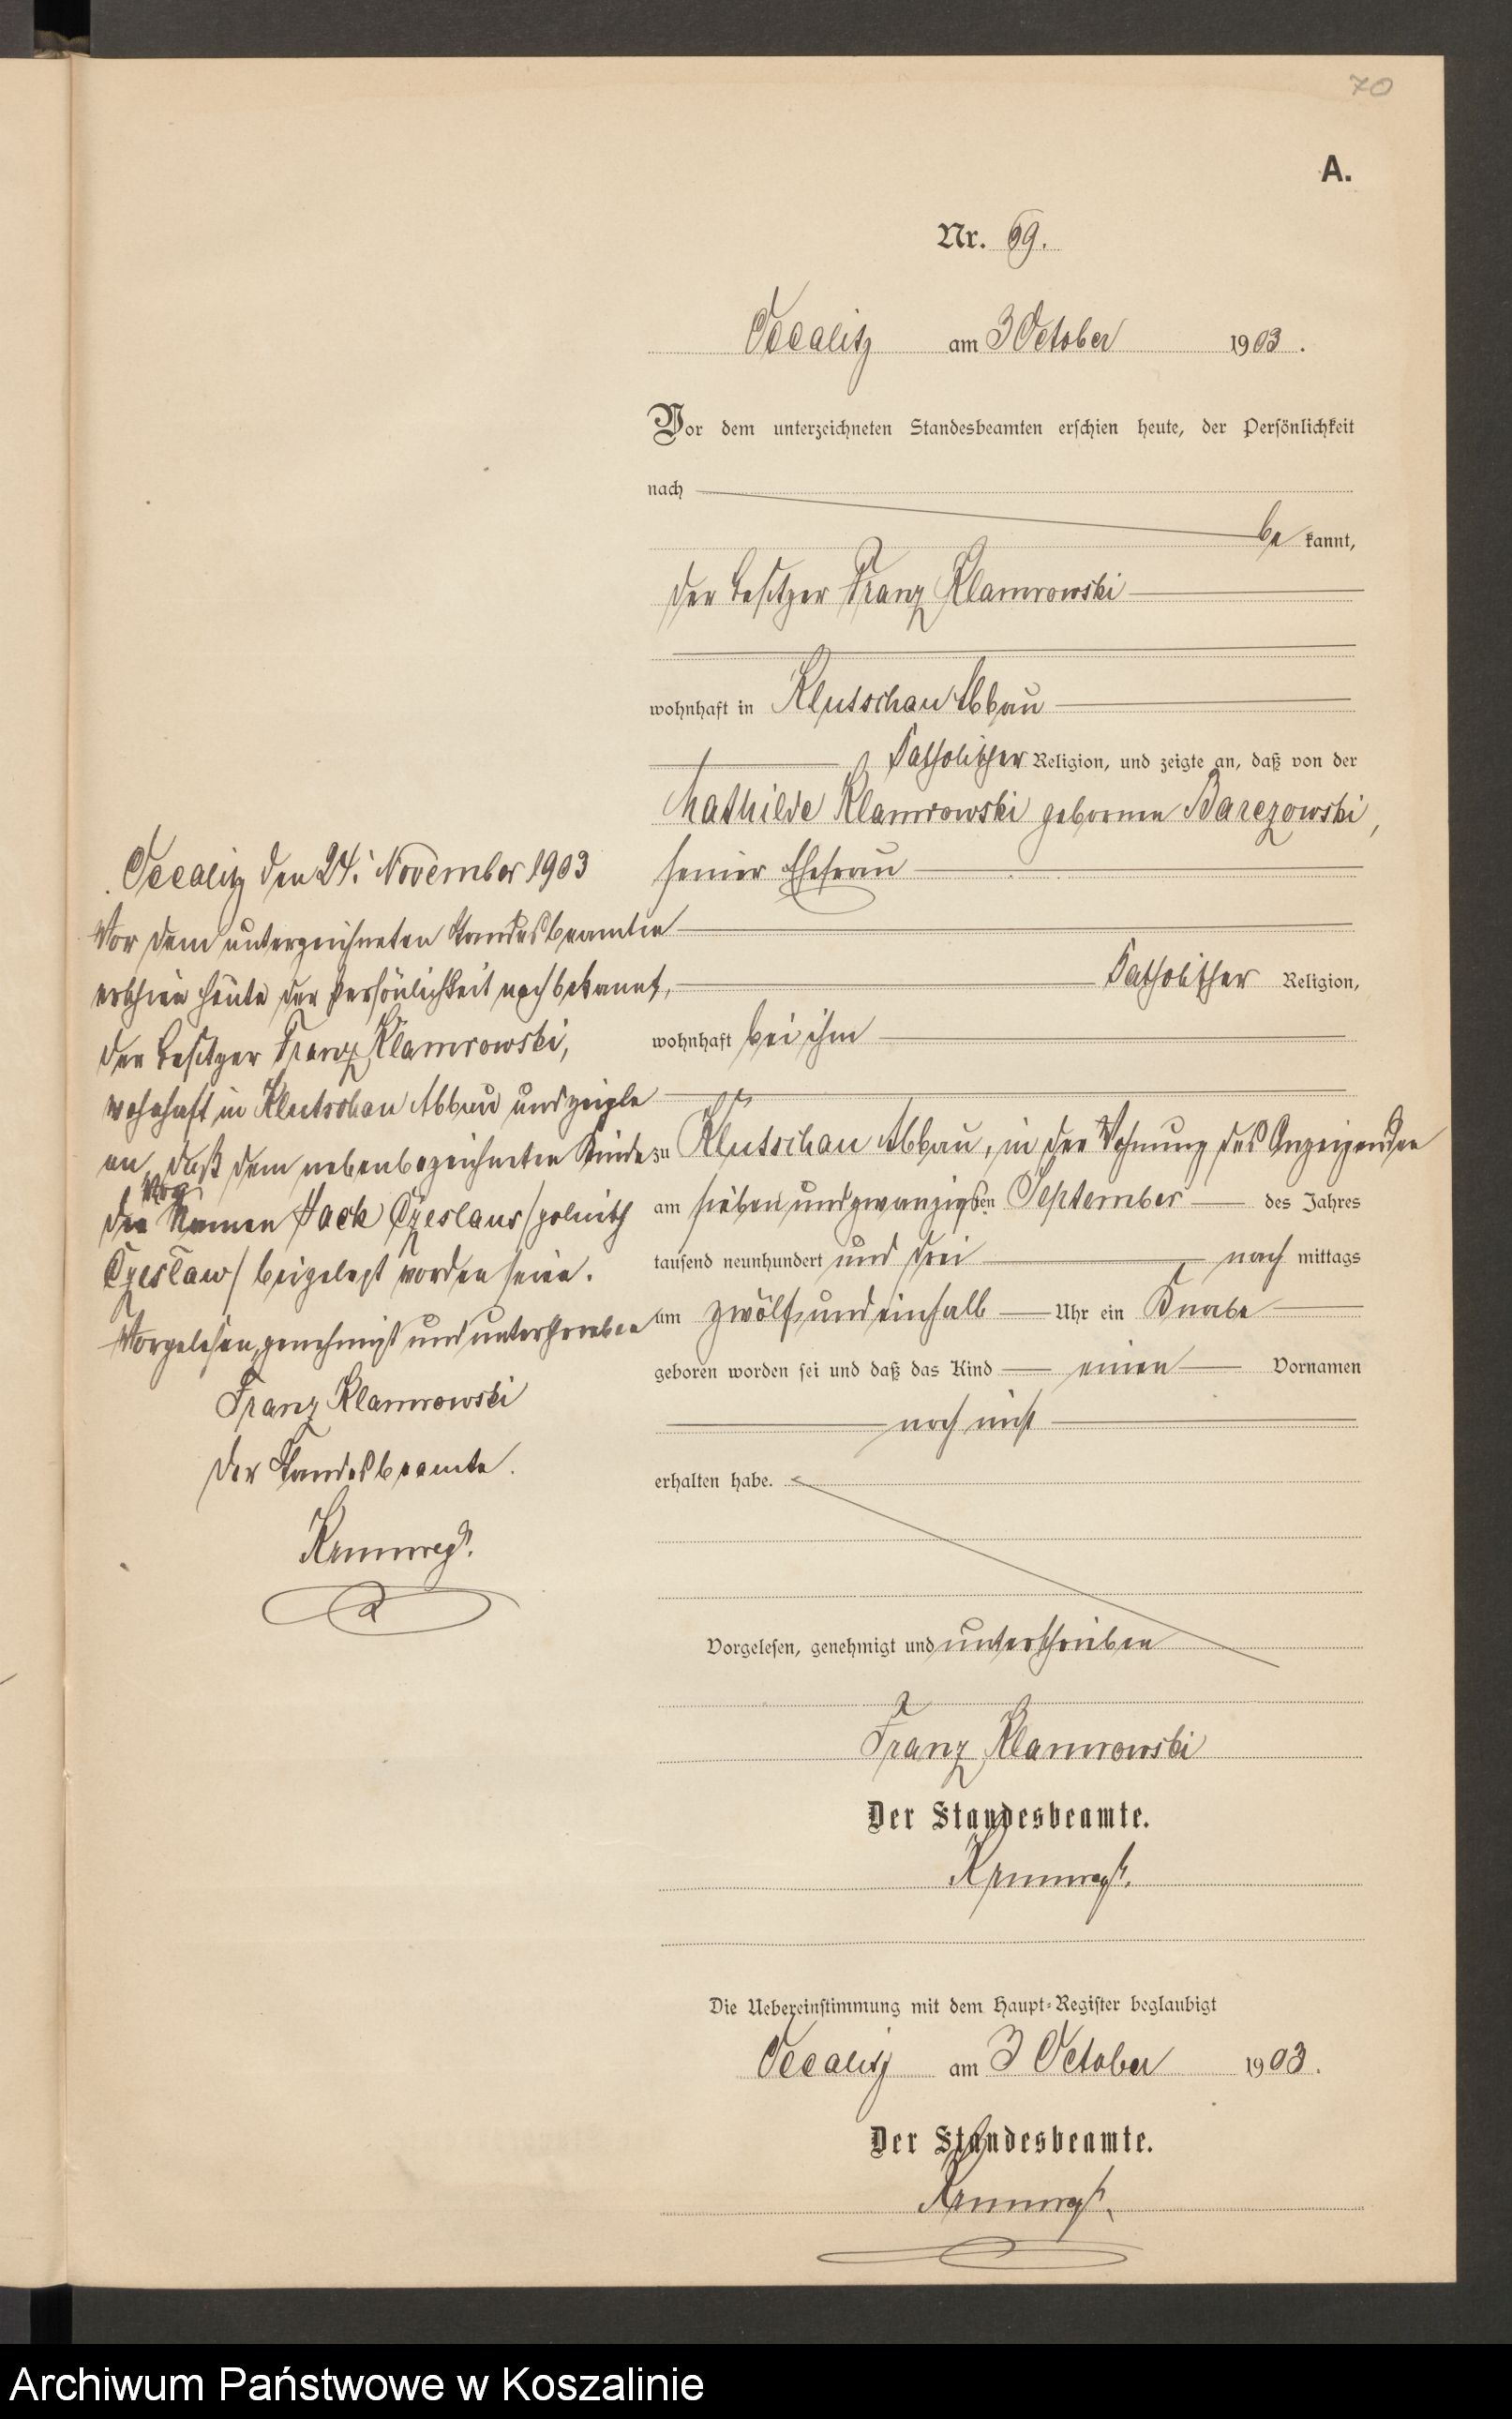 70
A.
Nr. 69.
Occalitz am 3 October 1903.
Vor dem unterzeichneten Standesbeamten erschien heute, der Persönlichkeit
nach
be kannt,
der Besitzer Franz Klamrowski
wohnhaft in Klutschau Abbau
katholischer Religion, und zeigte an, daß von der
Mathilde Klamrowski geborenen Barczowski,
seiner Ehefrau
katholischer Religion,
wohnhaft bei ihm
zu Klutschau Abbau, in der Wohnung des Anzeigenden
am sieben und zwanzigsten September des Jahres
tausend neunhundert und drei nach mittags
um zwölf und einhalb Uhr ein Knabe
geboren worden sei und daß das Kind einen Vornamen
noch nicht
erhalten habe.
Vorgelesen, genehmigt und unterschrieben
Franz Klamrowski
Der Standesbeamte.
Die Uebereinstimmung mit dem Haupt-Register beglaubigt
Occalitz am 3 October 1903.
Der Standesbeamte.
Occalitz den 24. November 1903
Vor dem unterzeichneten Standesbeamten
erschien heute der Persönlichkeit nach bekannt,
der Besitzer Franz Klamrowski,
wohnhaft in Klutschau Abbau und zeigte
an, daß dem nebenbezeichneten Kinde
Vor
die Namen Czeslaus /polnisch
Czesław/ beigelegt worden seien.
Vorgelesen, genehmigt und unterschrieben
Franz Klamrowski
Der Standesbeamte.
Archiwum Państwowe w Koszalinie